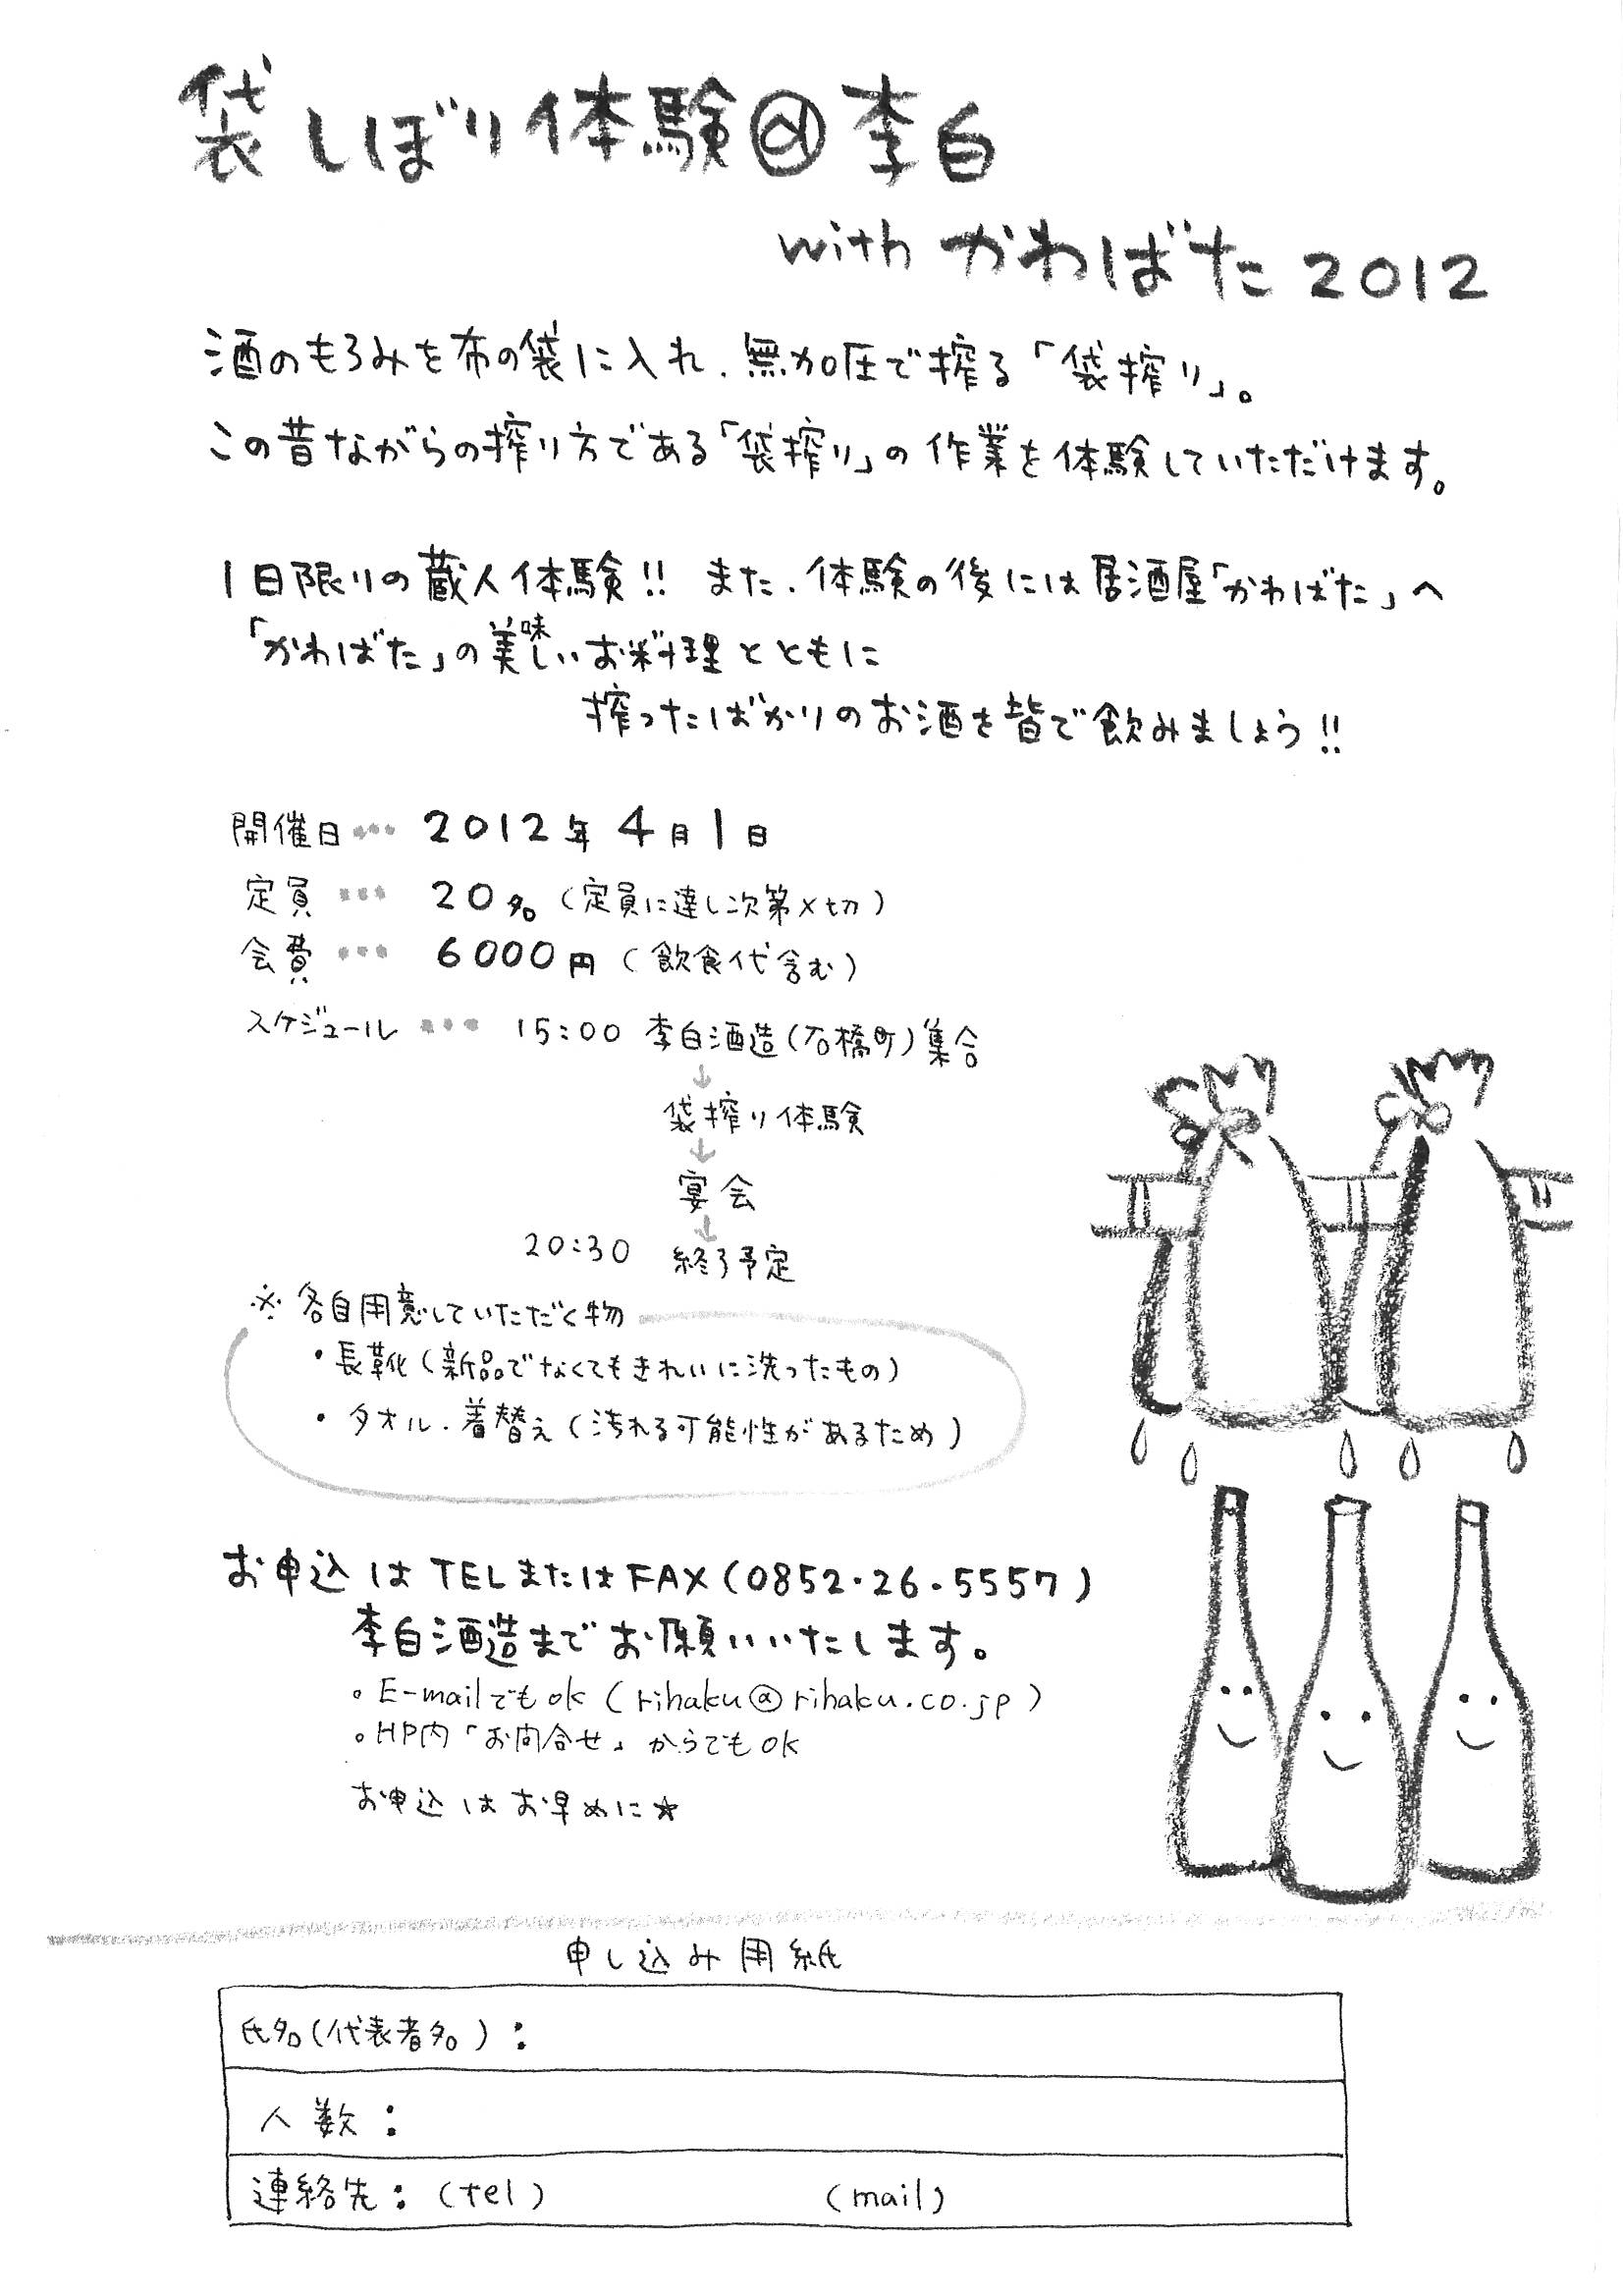 袋しぼり体験@李白
with かわばた 2012
酒のもろみを布の袋に入れ、無加圧で搾る「袋搾り」。
この昔ながらの搾り方である「袋搾り」の作業を体験していただけます。
1日限りの蔵人体験!! また、体験の後には居酒屋「かわばた」へ
「かわばた」の美味しいお料理とともに
搾ったばかりのお酒を皆で飲みましょう!!
開催日… 2012年 4月1日
定員 … 20名(定員に達し次第〆切)
会費 … 6000円(飲食代含む)
スケジュール … 15:00 李白酒造(石橋町)集合
↓
袋搾り体験
↓
宴会
↓
20:30 終了予定
※ 各自用意していただく物
・長靴(新品でなくてもきれいに洗ったもの)
・タオル、着替え(汚れる可能性があるため)
お申込はTELまたはFAX(0852・26・5557)
李白酒造までお願いいたします。
。E-mailでもok(rihaku@rihaku.co.jp)
。HP内「お問合せ」からでもok
お申込はお早めに☆
申し込み用紙
氏名(代表者名):
人数:
連絡先:(tel) (mail)